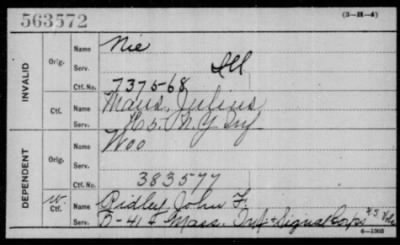 563572 (3-H-4)
INVALID
Orig. Name Nie
Serv. Ill
Ctf. No. 7375-68
Ctf. Name Maus, Julius
Serv. N.Y. Inf
DEPENDENT
Orig. Name Woo
Serv.
Ctf. No. 383577
W. Ctf. Name Ridley, John F.
Serv. D-41 Mass. Inf & Signal Corps U.S. Vols
6-1368